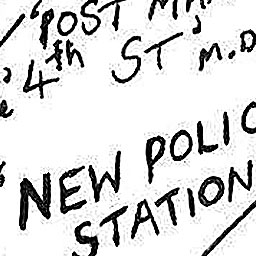 'POST
4th ST' M.D
NEW POLIC
STATION